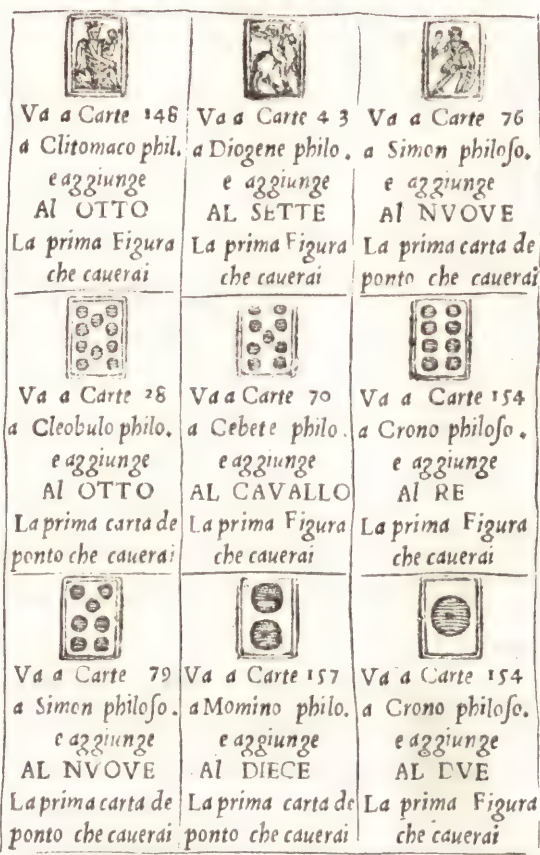 Va a Carte 148
a Clitomaco phil.
e aggiunge
Al OTTO
La prima Figura
che cauerai
Va a Carte 43
a Diogene philo.
e aggiunge
AL SETTE
La prima Figura
che cauerai
Va a Carte 76
a Simon philoſo.
e aggiunge
Al NVOVE
La prima carta de
ponto che cauerai
Va a Carte 28
a Cleobulo philo.
e aggiunge
Al OTTO
La prima carta de
ponto che cauerai
Va a Carte 70
a Cebete philo.
e aggiunge
AL CAVALLO
La prima Figura
che cauerai
Va a Carte 154
a Crono philoſo.
e aggiunge
Al RE
La prima Figura
che cauerai
Va a Carte 79
a Simon philoſo.
e aggiunge
AL NVOVE
La prima carta de
ponto che cauerai
Va a Carte 157
a Momino philo.
e aggiunge
Al DIECE
La prima carta de
ponto che cauerai
Va a Carte 154
a Crono philoſo.
e aggiunge
AL DVE
La prima Figura
che cauerai